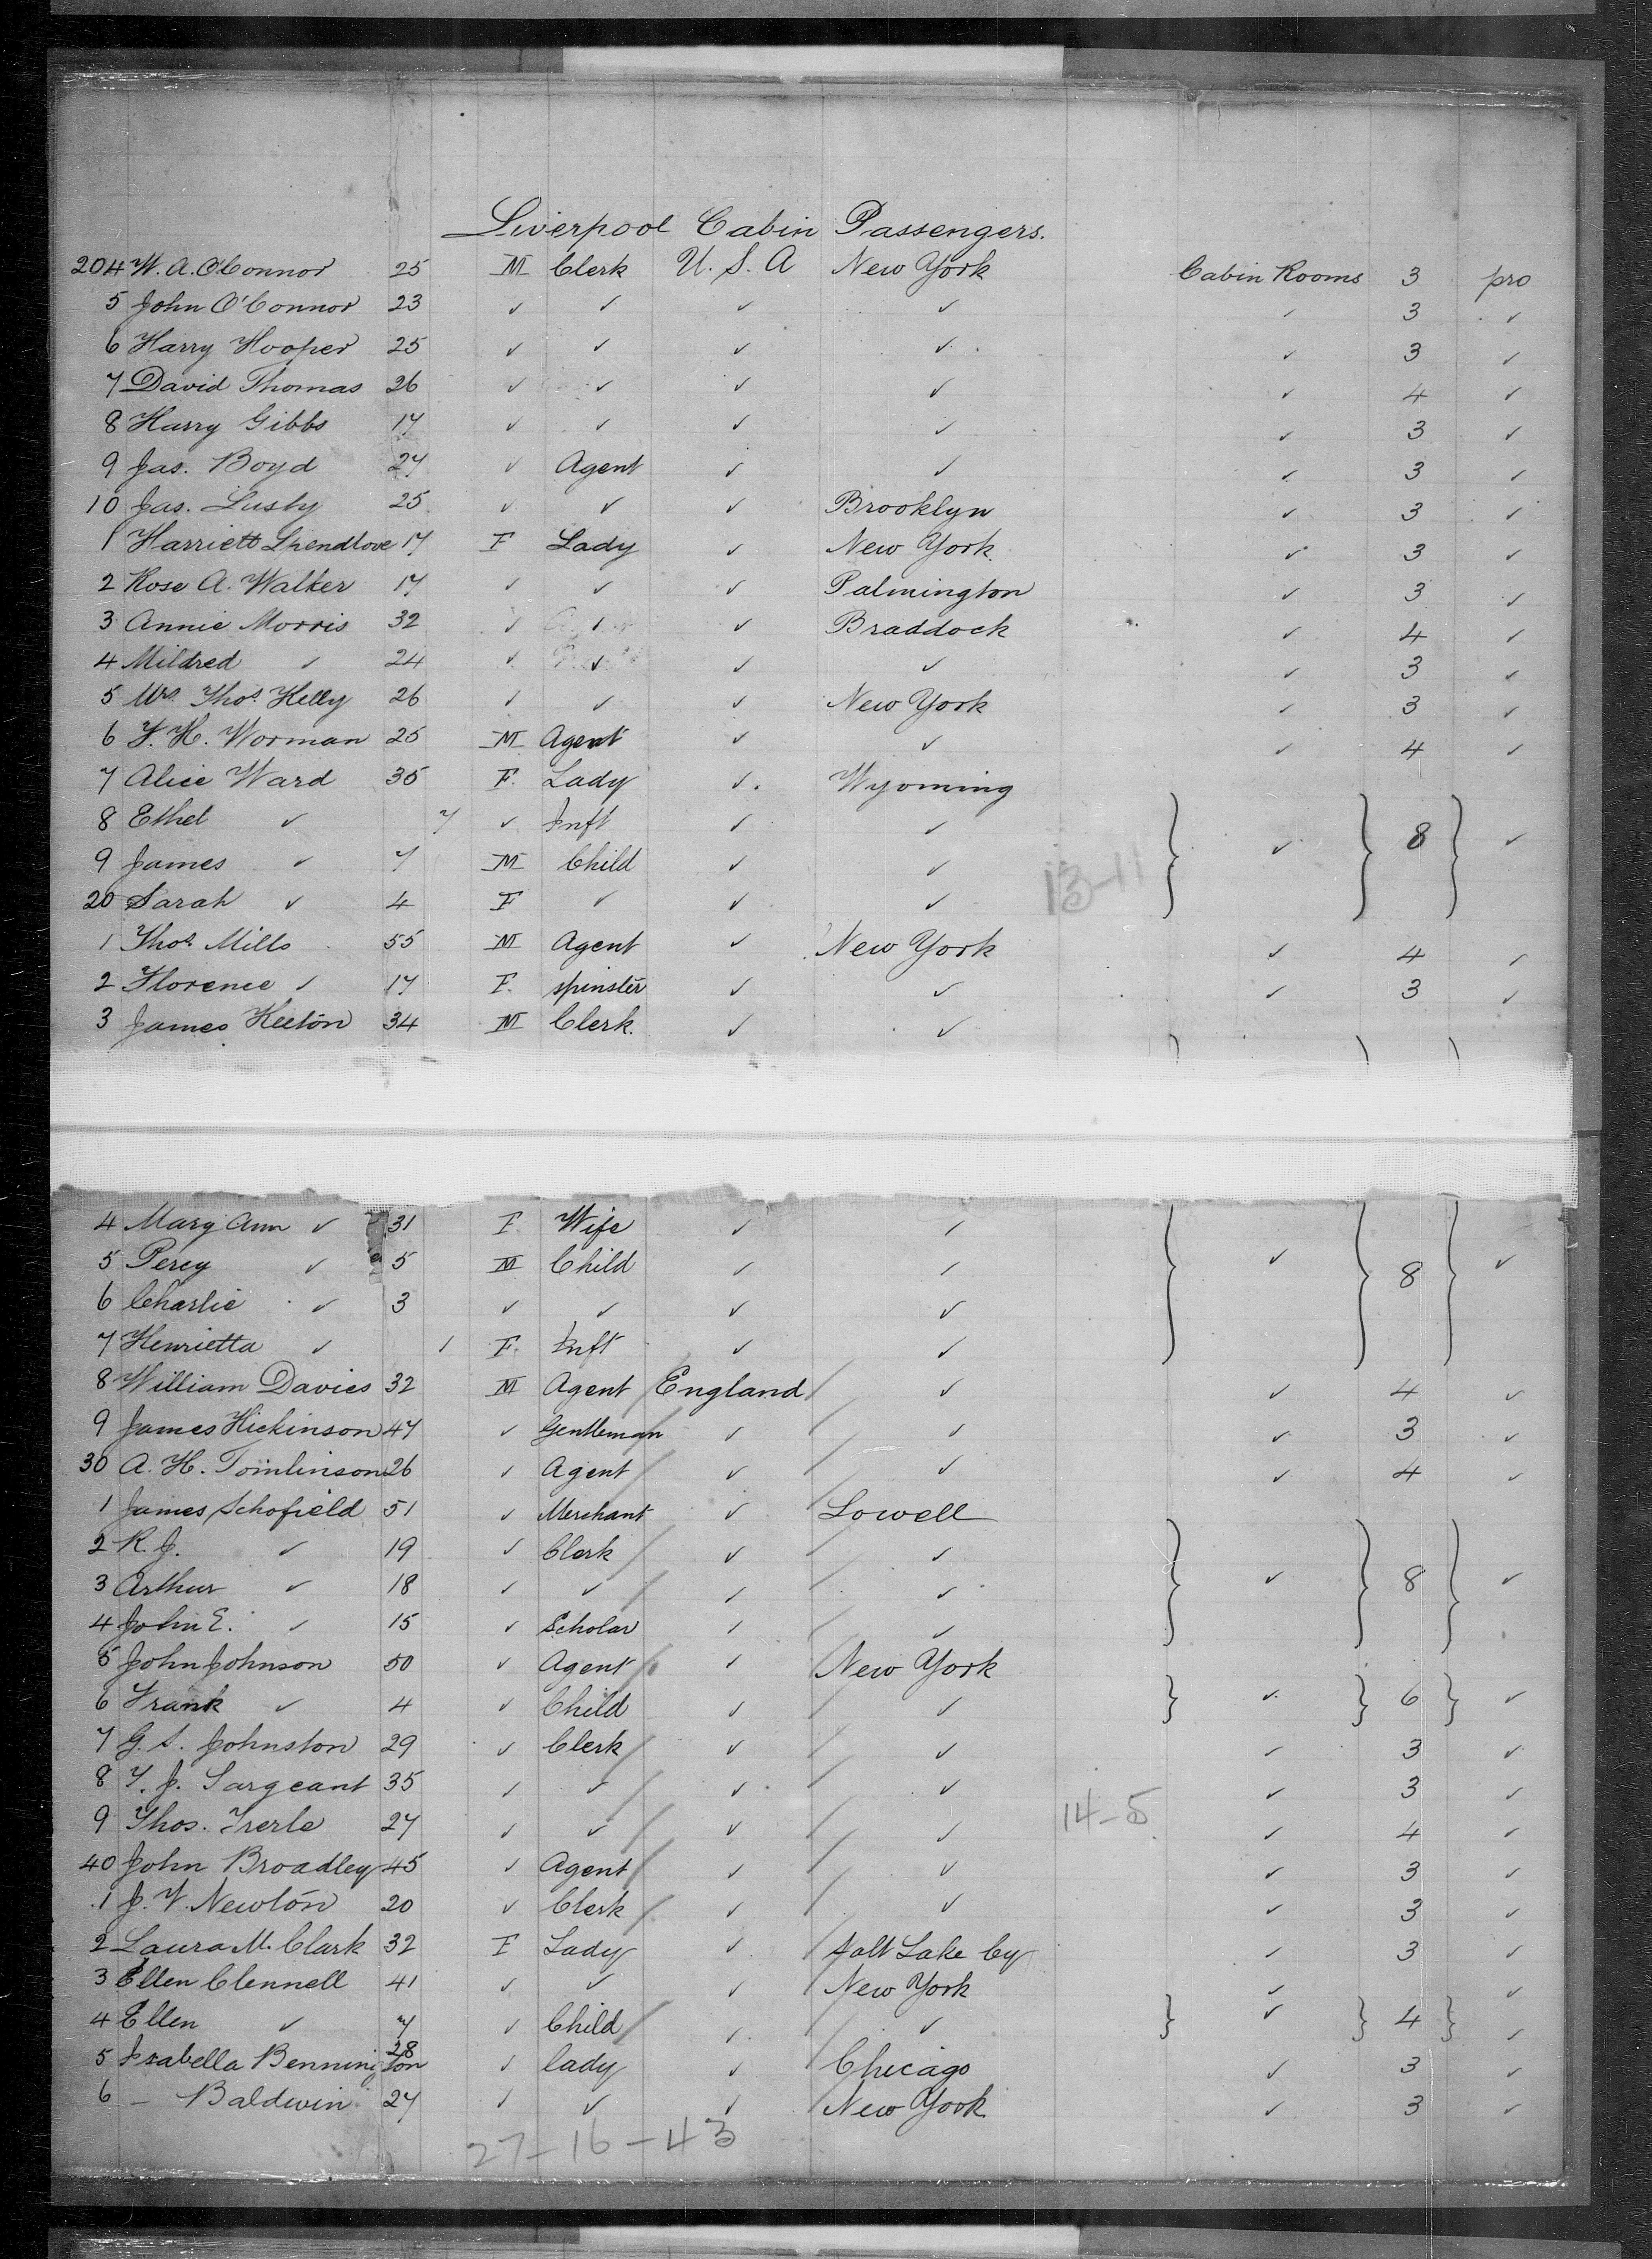 Liverpool Cabin Passengers.
204 W. A. O'Connor 25 M Clerk U. S. A New York Cabin Rooms 3 pro
5 John O'Connor 23 ✓ ✓ ✓ ✓ ✓ 3 ✓
6 Harry Hooper 25 ✓ ✓ ✓ ✓ ✓ 3 ✓
7 David Thomas 26 ✓ ✓ ✓ ✓ ✓ 4 ✓
8 Harry Gibbs 17 ✓ ✓ ✓ ✓ ✓ 3 ✓
9 Jas. Boyd 27 ✓ Agent ✓ ✓ ✓ 3 ✓
10 Jas. Lusby 25 ✓ ✓ ✓ Brooklyn ✓ 3 ✓
1 Harriett Spendlove 17 F Lady ✓ New York ✓ 3 ✓
2 Rose A. Walker 17 ✓ ✓ ✓ Palmington ✓ 3 ✓
3 Annie Morris 32 ✓ ✓ ✓ Braddock ✓ 4 ✓
4 Mildred ✓ 24 ✓ ✓ ✓ ✓ ✓ 3 ✓
5 Mrs Thos. Kelly 26 ✓ ✓ ✓ New York ✓ 3 ✓
6 F. H. Worman 25 M Agent ✓ ✓ ✓ 4 ✓
7 Alice Ward 35 F. Lady ✓ Wyoming
8 Ethel ✓ 7 ✓ Inft ✓ ✓ ✓ 8 ✓
9 James ✓ 7 M Child ✓ ✓ 13-11
20 Sarah ✓ 4 F ✓ ✓ ✓
1 Thos. Mills 55 M Agent ✓ New York ✓ 4 ✓
2 Florence ✓ 17 F. spinster ✓ ✓ ✓ 3 ✓
3 James Keeton 34 M Clerk. ✓ ✓
4 Mary Ann ✓ 31 F Wife ✓ ✓
5 Percy ✓ 5 M Child ✓ ✓ ✓ 8 ✓
6 Charlie ✓ 3 ✓ ✓ ✓ ✓
7 Henrietta ✓ 1 F. Inft ✓ ✓
8 William Davies 32 M Agent England ✓ ✓ 4 ✓
9 James Hickinson 47 ✓ Gentleman ✓ ✓ ✓ 3 ✓
30 A. H. Tomlinson 26 ✓ Agent ✓ ✓ ✓ 4 ✓
1 James Schofield 51 ✓ Merchant ✓ Lowell
2 R. J. ✓ 19 ✓ Clerk ✓ ✓
3 Arthur ✓ 18 ✓ ✓ ✓ ✓ ✓ 8 ✓
4 John E. ✓ 15 ✓ Scholar ✓ ✓
5 John Johnson 50 ✓ Agent ✓ New York
6 Frank ✓ 4 ✓ Child ✓ ✓ ✓ 6 ✓
7 G. S. Johnston 29 ✓ Clerk ✓ ✓ ✓ 3 ✓
8 T. J. Sargeant 35 ✓ ✓ ✓ ✓ ✓ 3 ✓
9 Thos. 27 ✓ ✓ ✓ ✓ 14-5 ✓ 4 ✓
40 John Broadley 45 ✓ Agent ✓ ✓ ✓ 3 ✓
1 J. Newton 20 ✓ Clerk ✓ ✓ ✓ 3 ✓
2 Laura M. Clark 32 F Lady ✓ Salt Lake Cy ✓ 3 ✓
3 Ellen Clennell 41 ✓ ✓ ✓ New York ✓ ✓
4 Ellen ✓ 7 ✓ Child ✓ ✓ ✓ 4 ✓
5 Isabella Bennington 28 ✓ lady ✓ Chicago ✓ 3 ✓
6 — Baldwin 27 ✓ ✓ ✓ New York ✓ 3 ✓
27-16-43